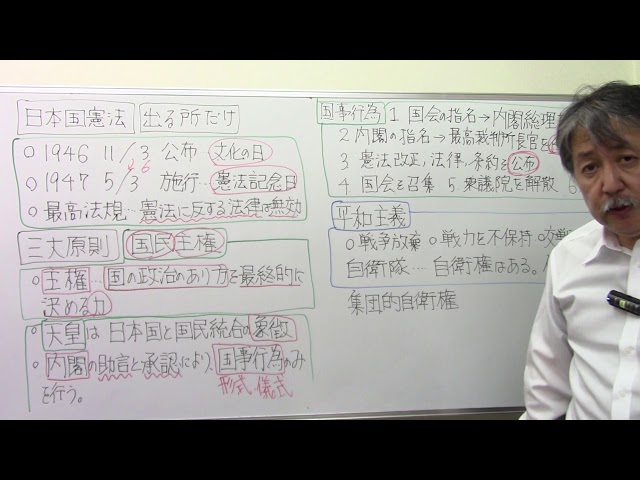 日本国憲法 出る所だけ
○1946 11/3 公布…文化の日
6
○1947 5/3 施行…憲法記念日
○最高法規…憲法に反する法律は無効
三大原則 国民主権
○主権…国の政治のあり方を最終的に
決める力
○天皇は日本国と国民統合の象徴
○内閣の助言と承認により、国事行為のみ
を行う。 形式、儀式
国事行為 1 国会の指名→内閣総理
2 内閣の指名→最高裁判所長官を
3 憲法改正、法律、条約を公布
4 国会を召集 5 衆議院を解散 6
平和主義
○戦争放棄 ○戦力を不保持 ○交戦
自衛隊…自衛権はある。
集団的自衛権